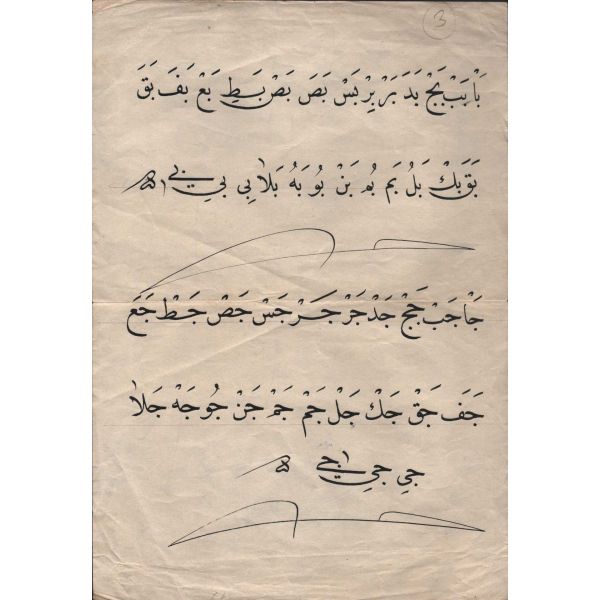 3
بَاْ بَبْ بَجْ بَدَ بَرْ بِرْ بَسْ بَصَ بَصْ بَطِ بَعْ بَفَ بَقَ
بَقَ بَكْ بَلُ بَم بُم بَنْ بُو بَهُ بَلاَ بِي بي بے
جَاْ جَبْ جَجْ جَدْ جَرْ جَرْ جَسْ جَصْ جَطْ جَعَ
جَفَ جَقْ جَكْ جَلْ جَمْ جَمْ جَنْ جُو جَهْ جَلاَ
جي جي جے